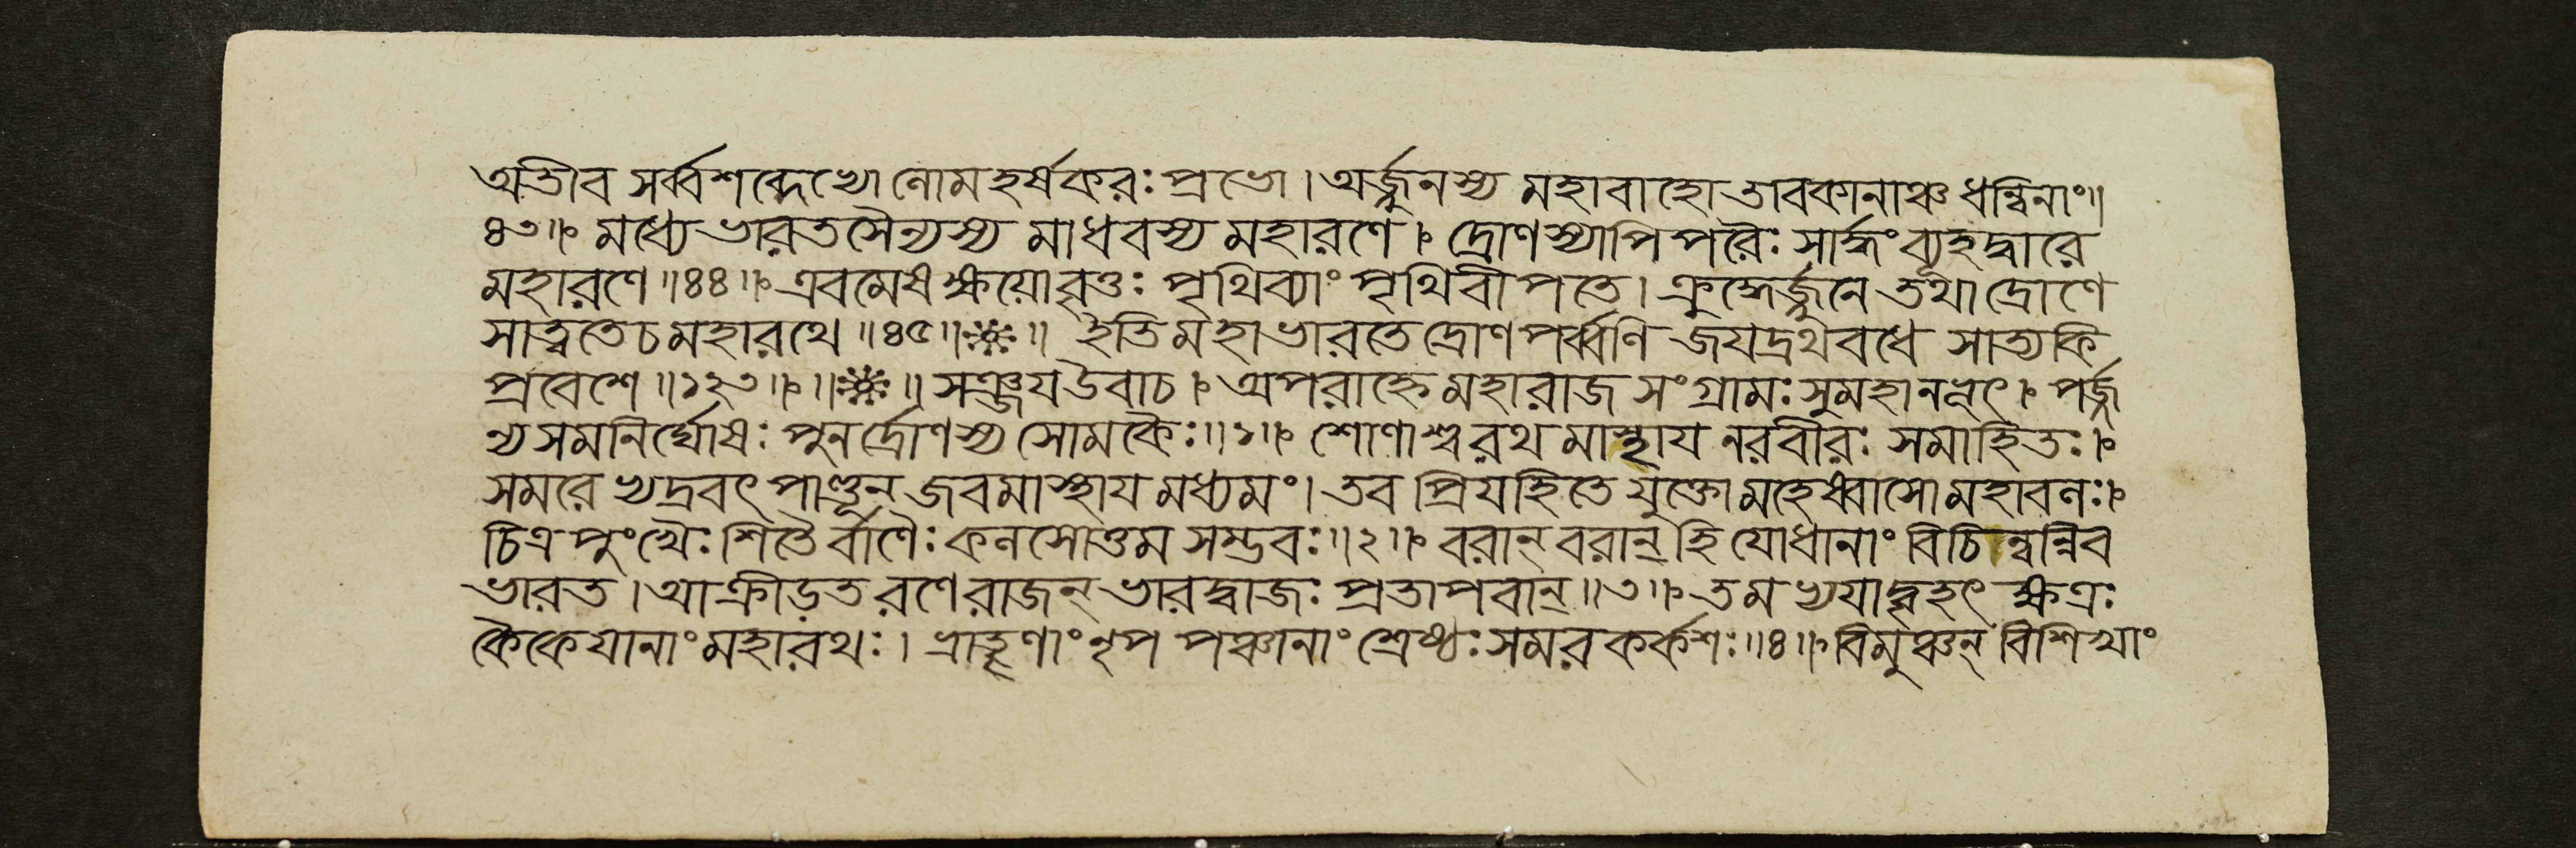 অতীব সর্ব্বশব্দেখোনোমহর্ষকরঃ প্রভো । অর্জ্জুনস্য মহাবাহো তাবকানাঞ্চ ধন্বিনাং॥
৪৩॥ মধ্যে ভারতসৈন্যস্য মাধবস্য মহারণে । দ্রোণস্যাপি পরৈঃ সার্দ্ধং ব্যূহদ্বারে
মহারণে ॥৪৪॥ এবমেষ ক্ষয়োবৃত্তঃ পৃথিব্যাং পৃথিবীপতে । ক্রুদ্ধেৰ্জ্জুনে তথা দ্রোণে
সাত্বতে চ মহারথে ॥৪৫॥ ॥ ইতি মহাভারতে দ্রোণপর্ব্বণি জযদ্রথবধে সাত্যকি
প্রবেশে ॥১২৩॥ ॥ ॥ সঞ্জয উবাচ । অপরাহ্নে মহারাজ সংগ্রামঃ সুমহানভূৎ । পর্জ্জ
ন্য সমনির্ঘোষঃ পুনর্দ্রোণস্য সোমকৈঃ॥১॥ শোণাশ্বরথমাস্থায নরবীরঃ সমাহিতঃ ।
সমরেভ্যদ্রবৎ পাণ্ডূন্ জবমাস্থায মধ্যমং । তব প্রিযহিতে যুক্তো মহেষ্বাসো মহাবলঃ ।
চিত্রপুংখৈঃ শিতৈর্বাণৈঃ কলসোত্তম সম্ভবঃ॥২॥ বরান্ বরান্ হি যোধানাং বিচিন্বন্নিব
ভারত । আক্রীড়ত রণে রাজন্ ভারদ্বাজঃ প্রতাপবান্ ॥৩॥ তমভ্যযাদ্বৃহৎ ক্ষত্রঃ
কৈকেযানাং মহারথঃ । ভ্রাতৄণাং নৃপ পঞ্চানাং শ্রেষ্ঠঃ সমরকর্কশঃ॥৪॥ বিমুঞ্চন্ বিশিখাং